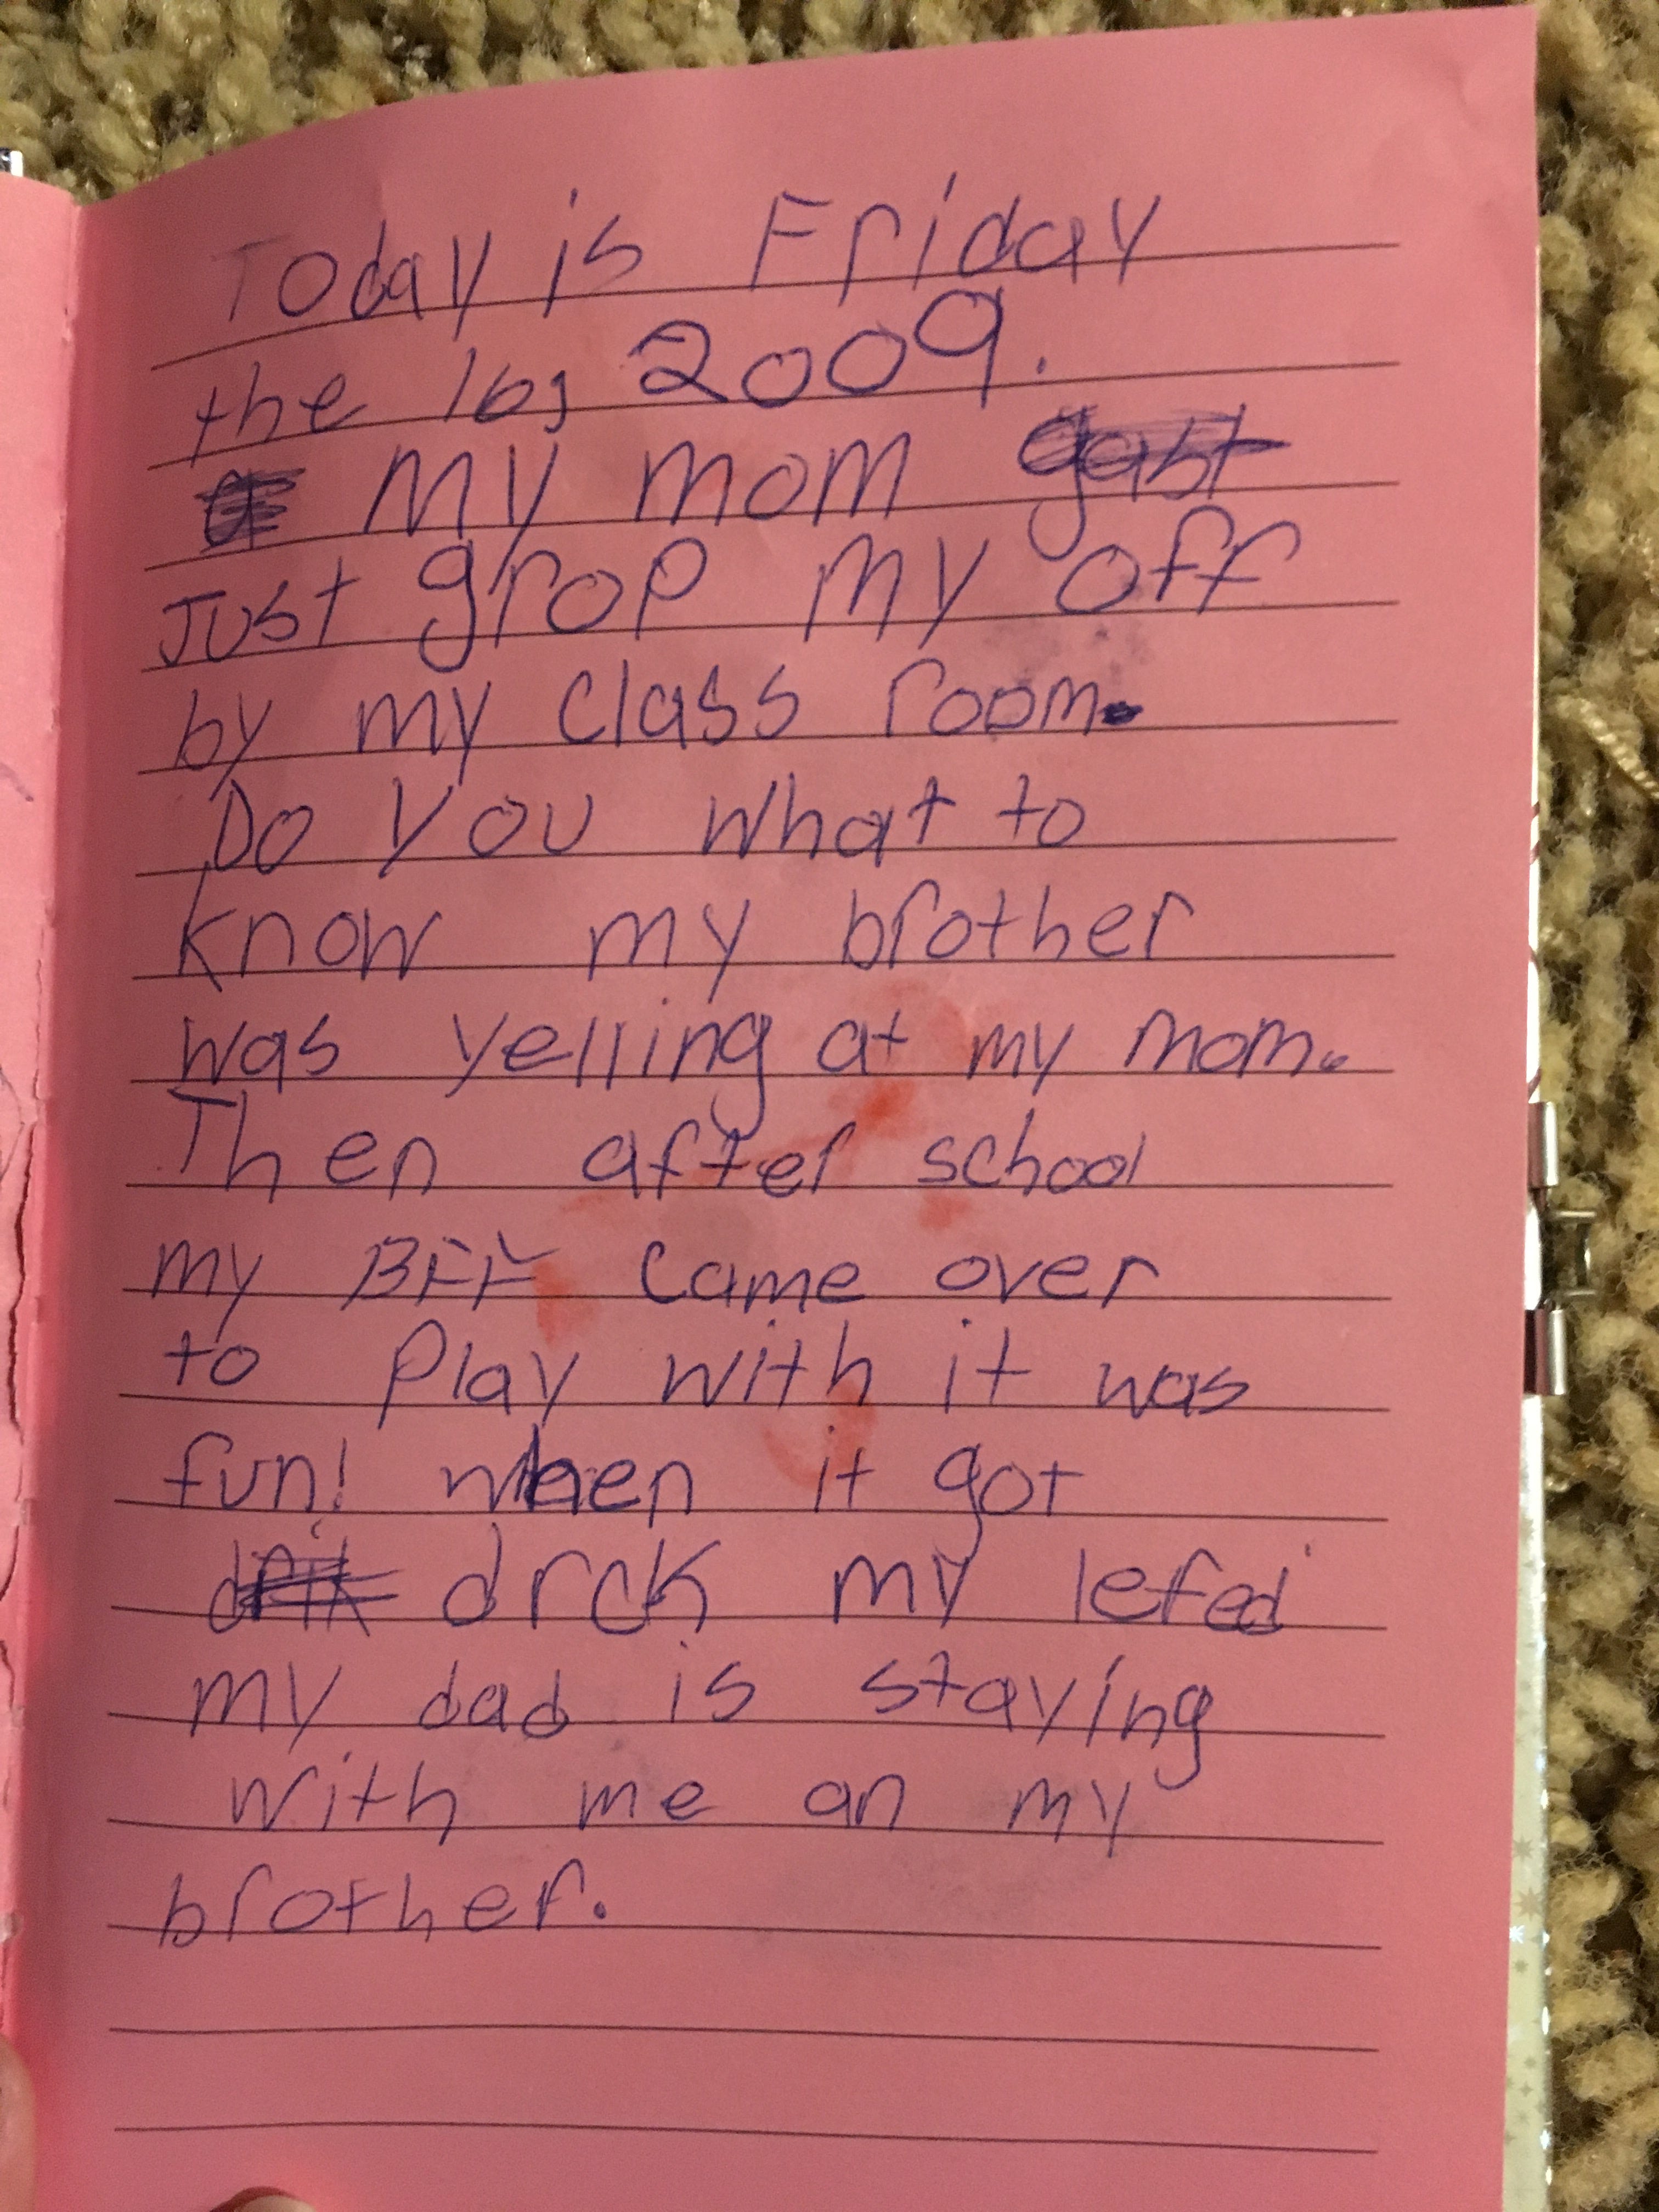 Today is Friday
the 16, 2009.
My mom
Just grop my off
by my class room.
Do you what to
know my brother
was yelling at my mom.
Then after school
my BFF came over
to play with it was
fun! when it got
drck my lefed
my dad is staying
with me an my
brother.